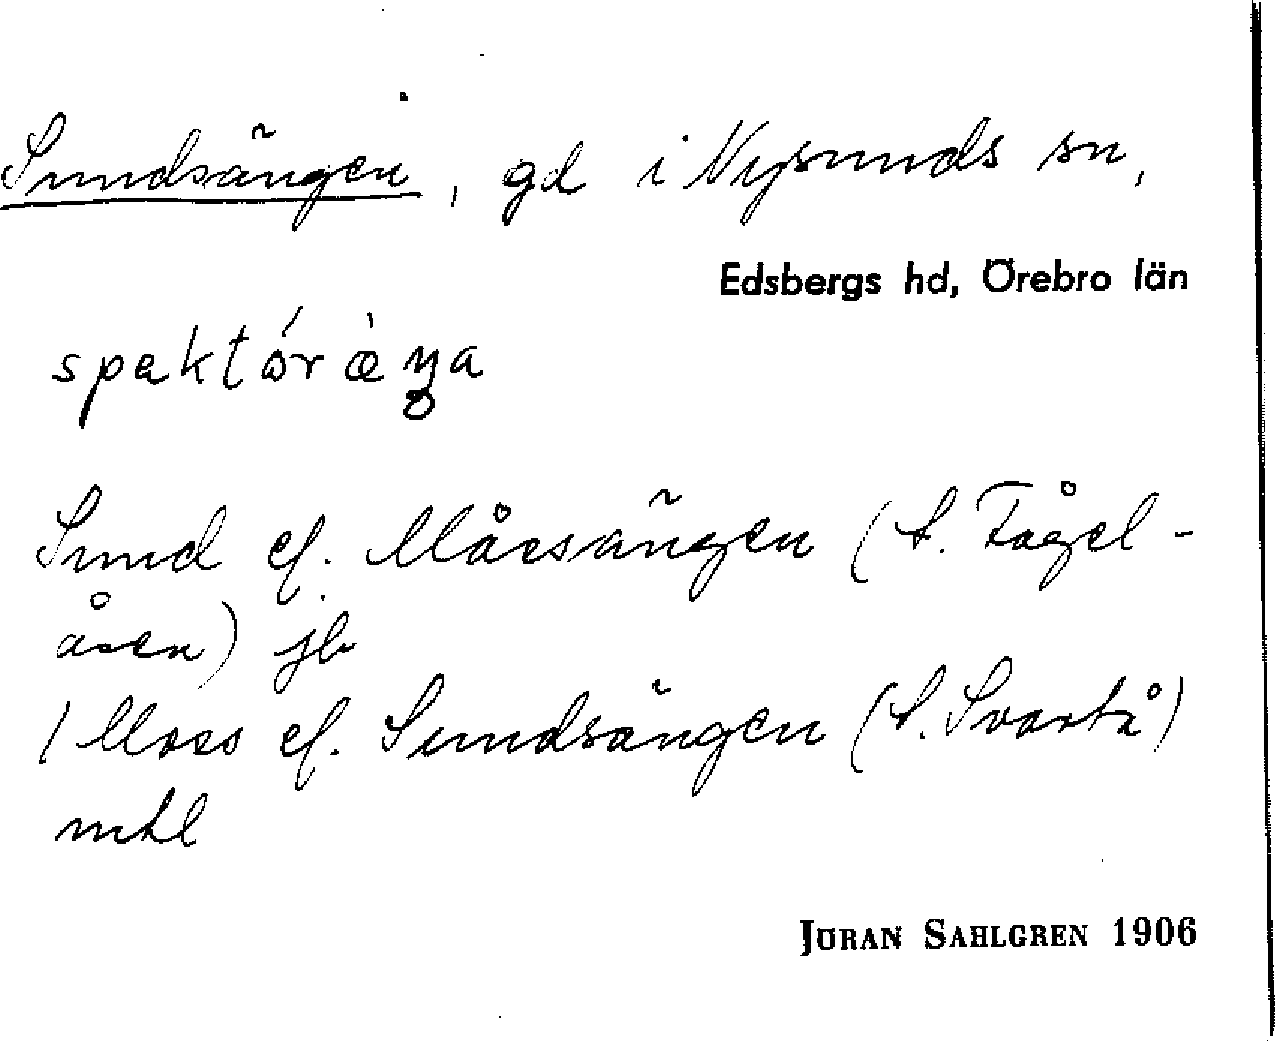 Sundsängen, gd i Nysunds sn,
Edsbergs hd, Örebro län
spektóræ̀ŋa
Sund ef. Måesängen (t. Tågel-
åsen) jb
/ Moss ef. Sundsängen (t. Svartå)
mtl
JÖRAN SAHLGREN 1906